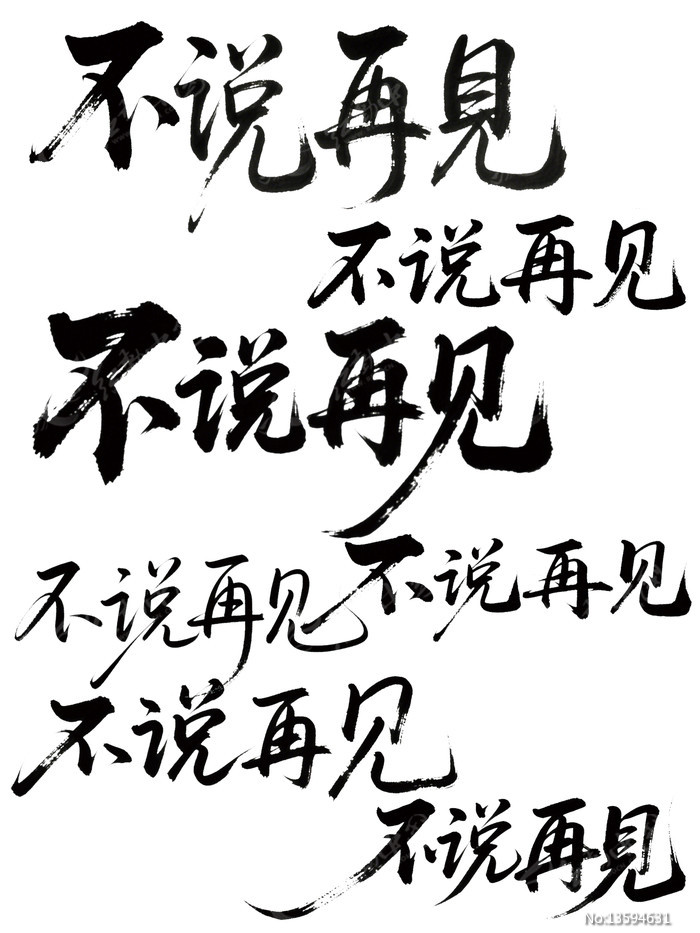 不说再見
不说再见
不说再见
不说再见
不说再见
不说再见
不说再見
No:13594631